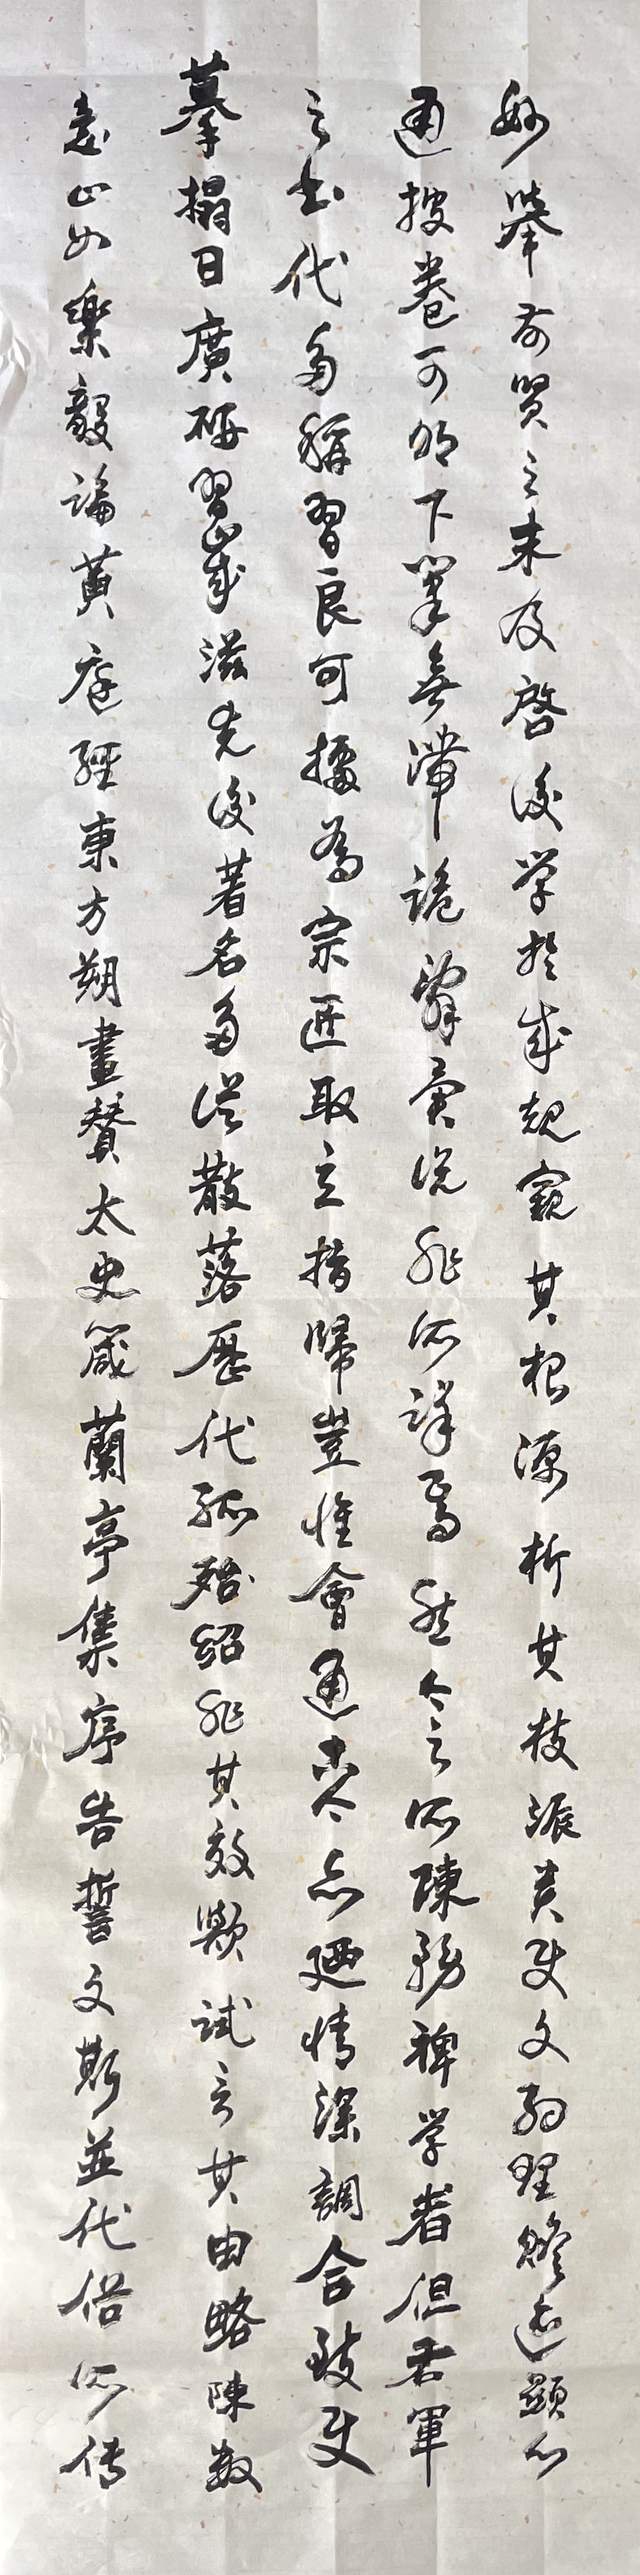 妙舉前賢之未及啓後學於成規窺其根源析其枝派貴使文約理贍迹顯心
通披卷可明下筆無滯詭辭異説非所詳焉然今之所陳務裨學者但右軍
之書代多稱習良可據為宗匠取立指歸豈惟會通古今亦迺情深調合致使
摹搨日廣研習歲滋先後著名多從散落歷代孤紹非其效歟試言其由略陳數
意止如樂毅論黃庭經東方朔畫贊太史箴蘭亭集序告誓文斯並代俗所传